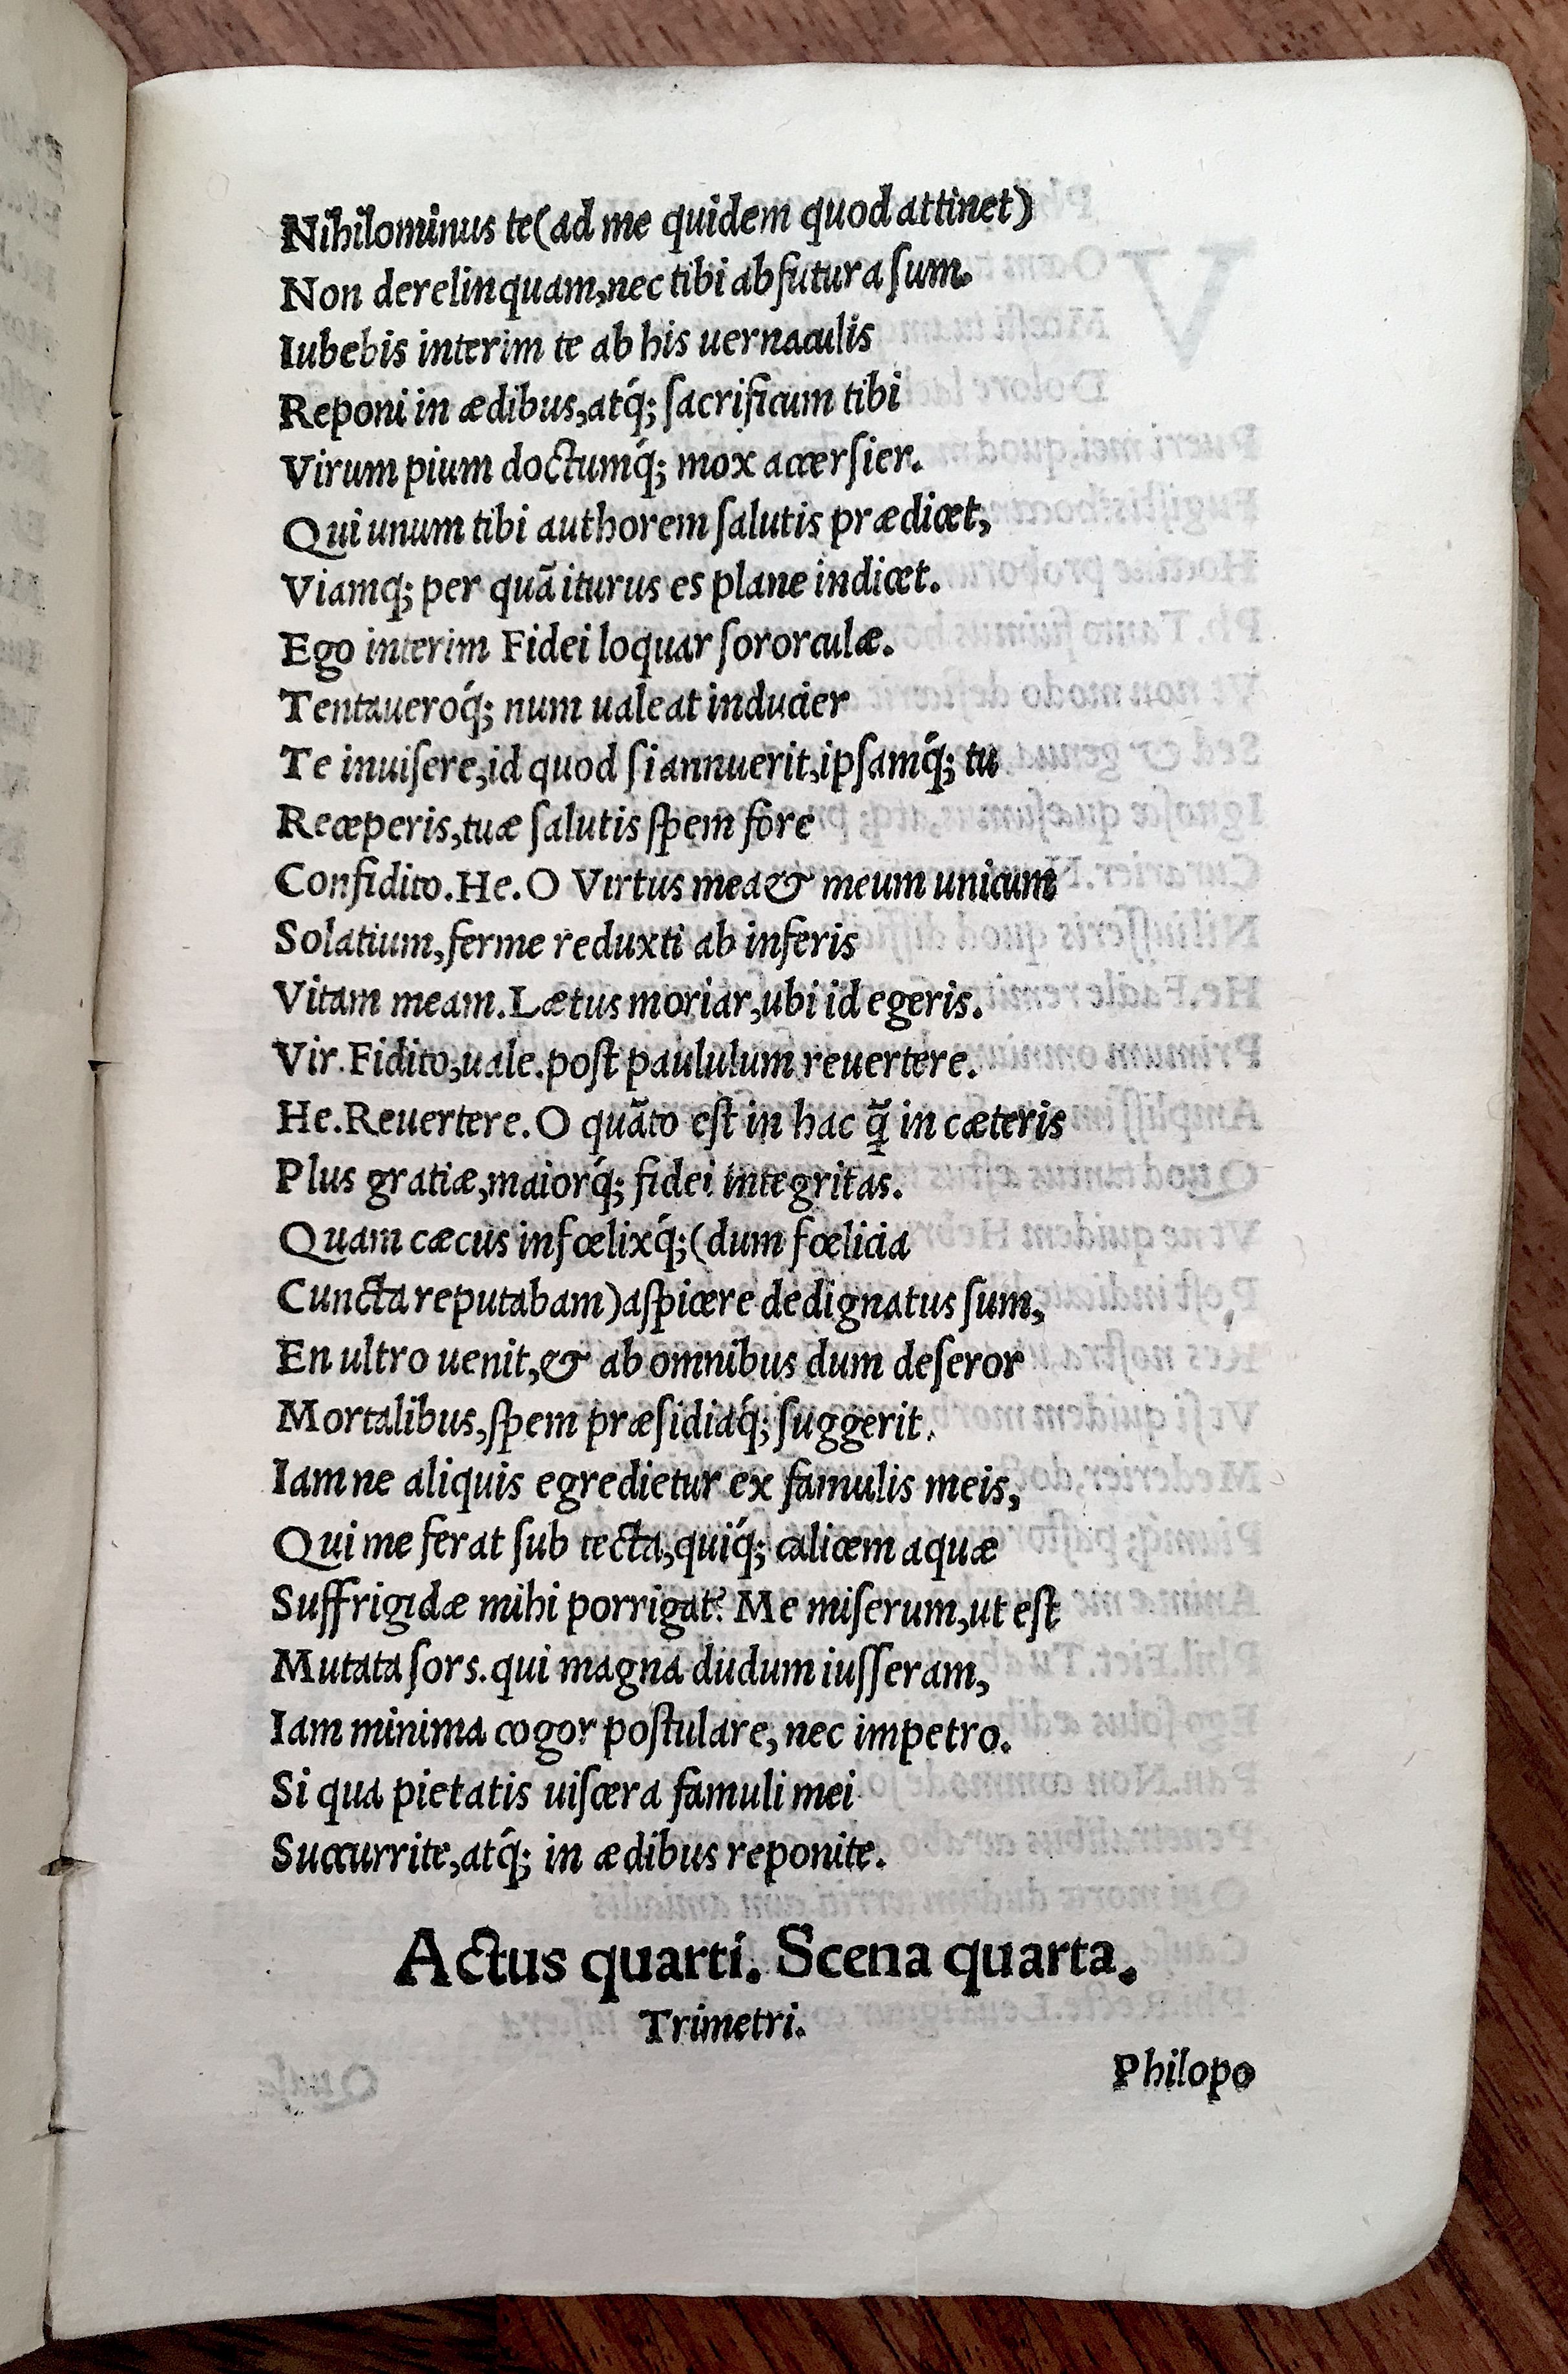 Nihilominus te(ad me quidem quod attinet)
Non derelinquam,nec tibi abfutura ſum.
Iubebis interim te ab his uernaculis
Reponi in ædibus,atq́; ſacrificum tibi
Virum pium doctumq́; mox accerſier.
Qui unum tibi authorem ſalutis prædicet,
Viamq; per quã iturus es plane indicet.
Ego interim Fidei loquar ſororculæ.
Tentaueroq́; num ualeat inducier
Te inuiſere,id quod ſi annuerit,ipſamq́; tu
Receperis,tuæ ſalutis ſpem fore
Confidito.He.O Virtus mea & meum unicum
Solatium,ferme reduxti ab inferis
Vitam meam.Lætus moriar,ubi id egeris.
Vir.Fidito,uale.poſt paululum reuertere.
He.Reuertere.O quãto eſt in hac q̃ in cæteris
Plus gratiæ,maiorq́; fidei integritas.
Quam cæcus infœlixq́;(dum fœlicia
Cuncta reputabam)aſpicere dedignatus ſum,
En ultro uenit,& ab omnibus dum deſeror
Mortalibus,ſpem præſidiaq́; ſuggerit.
Iamne aliquis egredietur ex famulis meis,
Qui me ferat ſub tecta,quiq́; calicem aquæ
Suffrigidæ mihi porrigat? Me miſerum,ut eſt
Mutata ſors.qui magna dudum iuſſeram,
Iam minima cogor poſtulare, nec impetro.
Si qua pietatis uiſcera famuli mei
Succurrite,atq́; in ædibus reponite.
Actus quarti. Scena quarta.
Trimetri.
Philopo